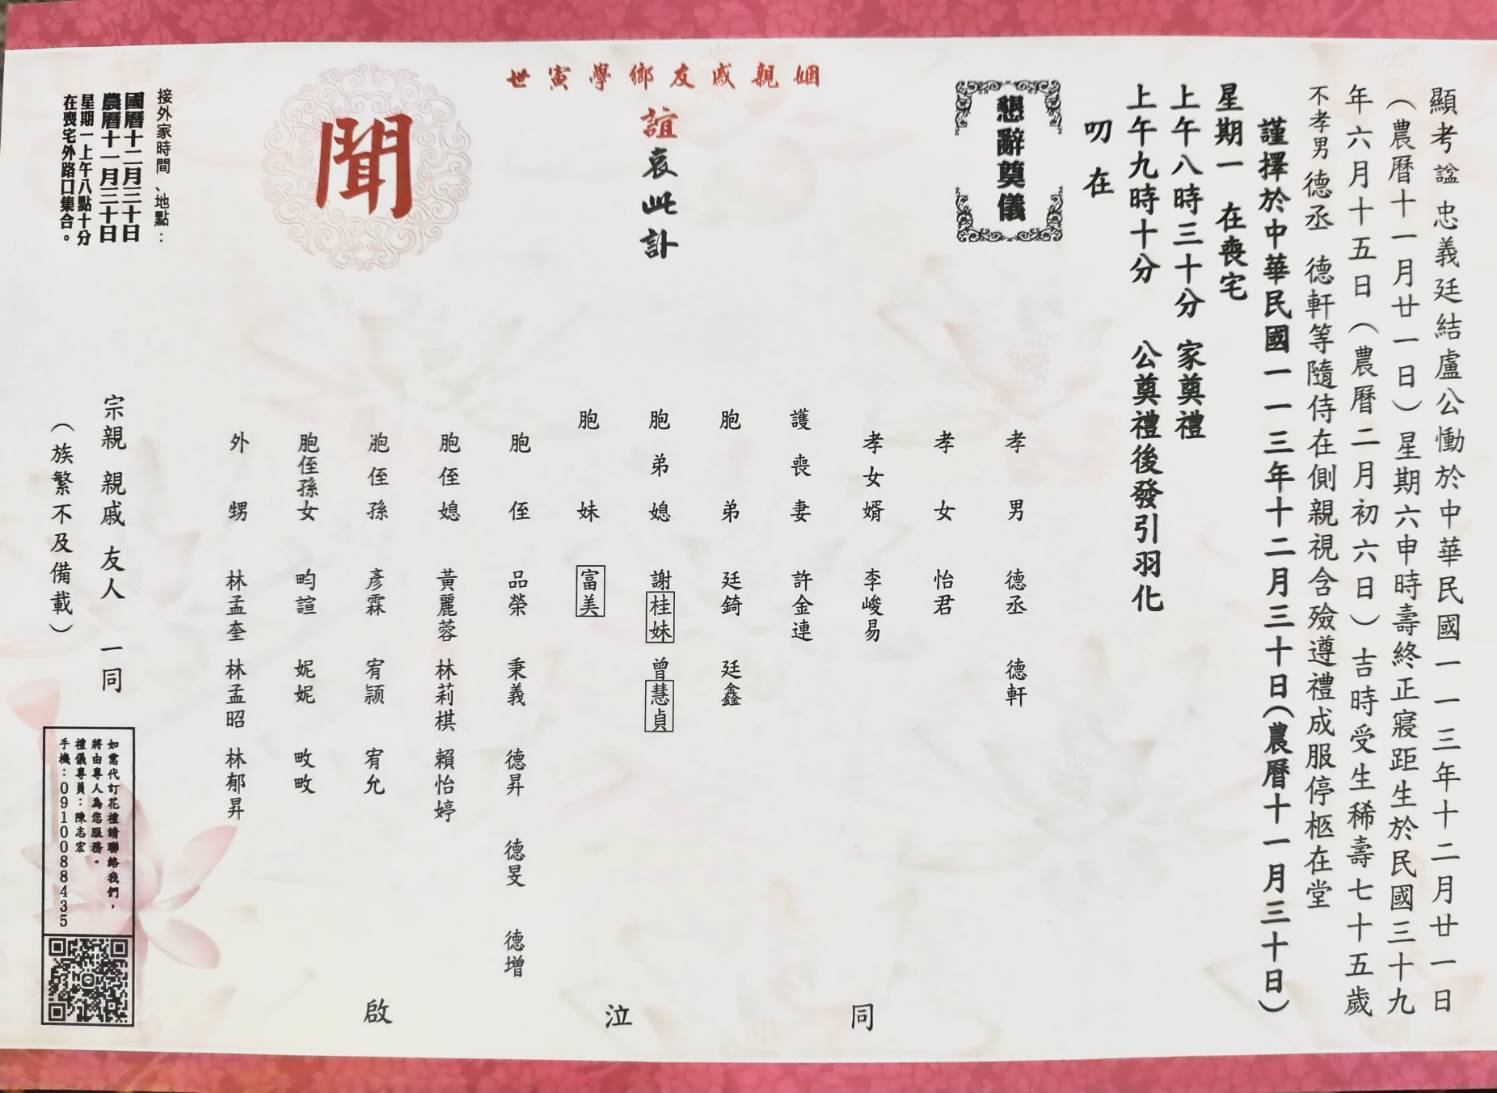 顯考諡忠義廷結盧公慟於中華民國一一三年十二月廿一日
（農曆十一月廿一日）星期六申時壽終正寢距生於民國三十九
年六月十五日（農曆二月初六日）吉時受生稀壽七十五歲
不孝男德丞 德軒等隨侍在側親視含殮遵禮成服停柩在堂
謹擇於中華民國一一三年十二月三十日（農曆十一月三十日）
星期一 在喪宅
上午八時三十分 家奠禮
上午九時十分 公奠禮後發引羽化
叨在
懇辭奠儀
姻親戚友鄉學寅世
誼哀此訃
聞
孝男 德丞 德軒
孝女 怡君
孝女婿 李峻易
護喪妻 許金連
胞弟 廷錡 廷鑫
胞弟媳 謝桂妹 曾慧貞
胞妹 富美
胞侄 品榮 秉義 德昇 德旻 德增
胞侄媳 黃麗蓉 林莉棋 賴怡婷
胞侄孫 彥霖 宥颍 宥允
胞侄孫女 畇諠 妮妮 畋畋
外甥 林孟奎 林孟昭 林郁昇
同泣啟
接外家時間、地點：
國曆十二月三十日
農曆十一月三十日
星期一上午八點十分
在喪宅外路口集合。
宗親 親戚 友人 一同
（族繁不及備載）
如需代訂花禮請聯絡我們，
將由專人為您服務。
禮儀專員：陳志宏
手機：0910088435